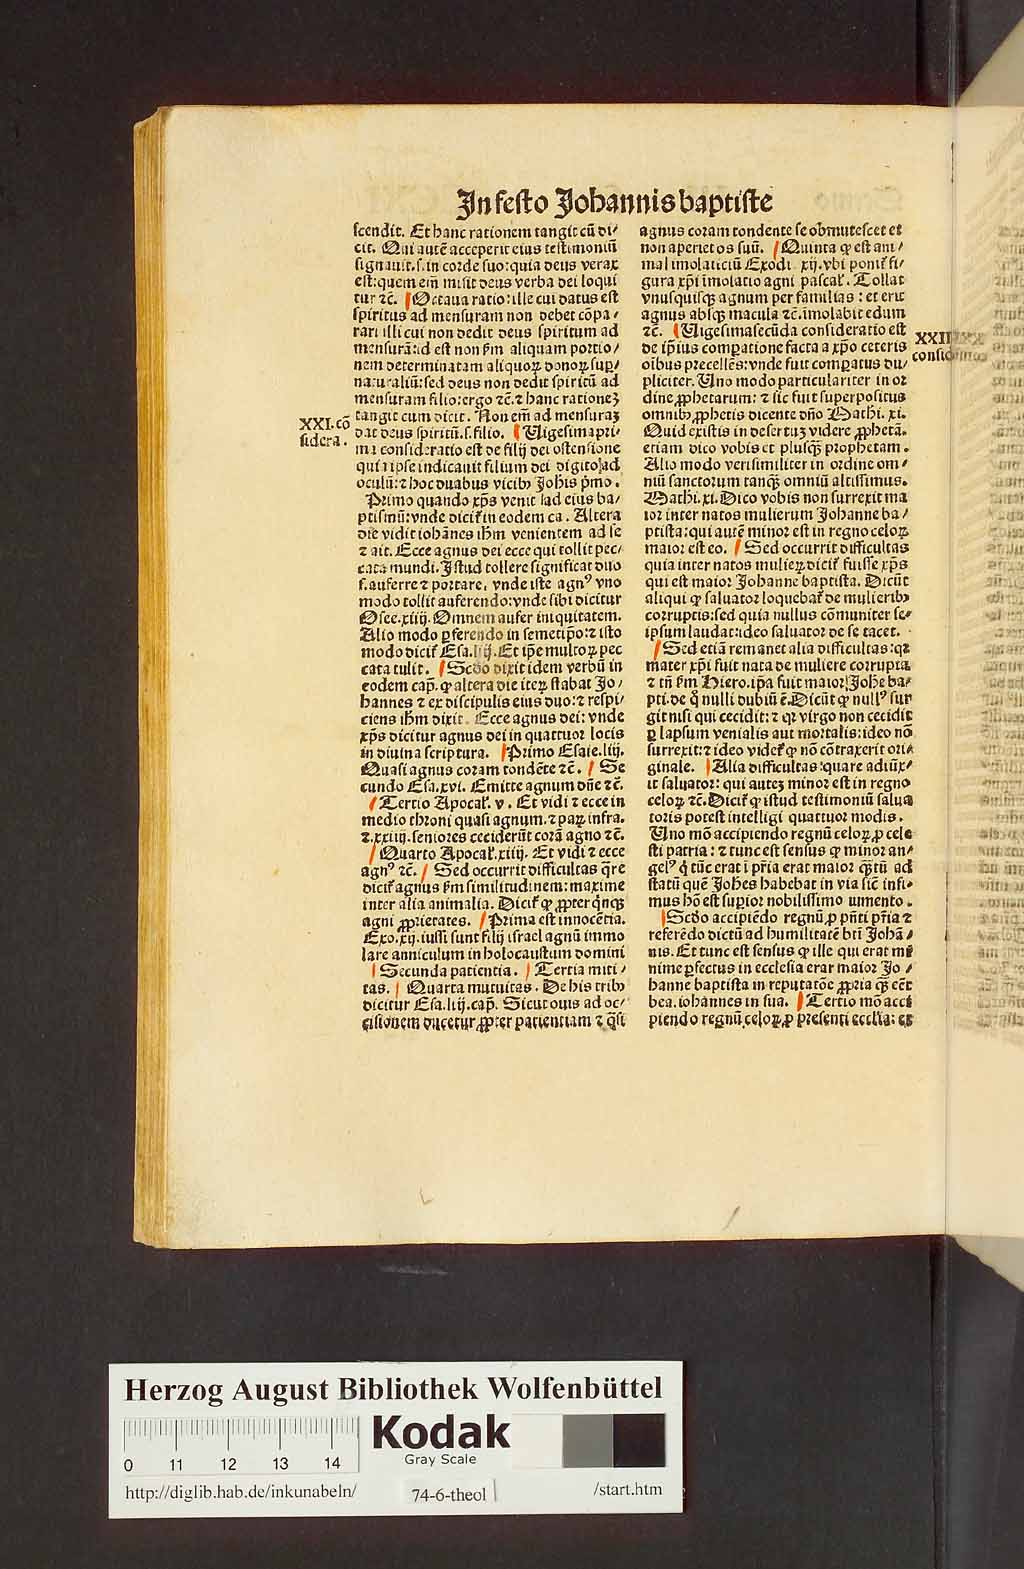 In festo Johannis baptiste
scendit. Et hanc rationem tangit cũ di⸗
cit. Qui autẽ acceperit eius testimoniũ
signauit.s.in corde suo:quia deus verax
est:quem em̃ misit deus verba dei loqui
tur ⁊c̃. Octaua ratio:ille cui datus est
spiritus ad mensuram non debet cõpa⸗
rari illi cui non dedit deus spiritum ad
mensurã:id est non ẜm aliquam portio⸗
nem determinatam aliquoꝝ donoꝝ suꝑ⸗
naturaliũ:sed deus non dedit spiritũ ad
mensuram filio:ergo ⁊c̃.⁊ hanc rationeꝫ
tangit cum dicit. Non em̃ ad mensuraꝫ
dat deus spiritũ.s.filio. Uigesimapri⸗
ma consideratio est de filij dei ostensione
quia ipse indicauit filium dei digito ad
oculũ:⁊ hoc duabus vicibꝰ Johis p̃mo.
Primo quando xp̃s venit ad eius ba⸗
ptismũ:vnde dicit̃ in eodem ca. Altera
die vidit iohãnes ihm̃ venientem ad se
⁊ ait. Ecce agnus dei ecce qui tollit pec⸗
cata mundi. Istud tollere significat duo
s.auferre ⁊ portare, vnde iste agnꝰ vno
modo tollit auferendo:vnde sibi dicitur
Osee.xiiij. Omnem aufer iniquitatem.
Alio modo ꝑferendo in semetip̃o:⁊ isto
modo dicit̃ Esa.liij. Et ip̃e multoꝝ pec
cata tulit. Scd̃o dixit idem verbũ in
eodem cap̃. ꝙ altera die iteꝝ stabat Jo⸗
hannes ⁊ ex discipulis eius duo:⁊ respi⸗
ciens ihm̃ dixit. Ecce agnus dei: vnde
xp̃s dicitur agnus dei in quattuor locis
in diuina scriptura. Primo Esaie.liij.
Quasi agnus coram tondẽte ⁊c̃. Se
cundo Esa.xvi. Emitte agnum dñe ⁊c̃.
Tertio Apocal̃. v. Et vidi ⁊ ecce in
medio throni quasi agnum. ⁊ paꝝ infra.
⁊.xxiiij.seniores ceciderũt corã agno ⁊c̃.
Quarto Apocal̃.xiiij. Et vidi ⁊ ecce
agnꝰ ⁊c̃. Sed occurrit difficultas q̃re
dicit̃ agnus ẜm similitudinem:maxime
inter alia animalia. Dicit̃ ꝙ ꝓpter q̃nqꝫ
agni ꝓprietates. Prima est innocẽtia.
Exo.xij.iussi sunt filij israel agnũ immo
lare anniculum in holocaustum domini
Secunda patientia. Tertia miti⸗
tas. Quarta mutuitas. De his tribꝰ
dicitur Esa.liij.cap̃. Sicut ouis ad oc⸗
cisionem ducetur ꝓpter patientiam ⁊ q̃si
XXI.cõ
sidera.
agnus coram tondente se obmutescet et
non aperiet os suũ. Quinta ꝙ est ani⸗
mal imolaticiũ Exodi xij.vbi ponit̃ fi⸗
gura xp̃i ĩmolatio agni pascal̃. Tollat
vnusquisqꝫ agnum per familias : et erit
agnus absqꝫ macula ⁊c̃.ĩmolabit edum
⁊c̃. Uigesimasecũda consideratio est
de ip̃ius comꝑatione facta a xp̃o ceteris
oĩbus precellẽs:vnde fuit comꝑatus du⸗
pliciter. Uno modo particulariter in or
dine ꝓphetarum: ⁊ sic fuit superpositus
omnibꝰ ꝓphetis dicente dño Mathi. xi.
Quid existis in desertuꝫ videre ꝓphetã.
etiam dico vobis et plusqꝫ̃ prophetam.
Alio modo verisimiliter in ordine om⸗
niũ sanctorum tanqꝫ̃ omniũ altissimus.
Mathi.xi.Dico vobis non surrexit ma
ior inter natos mulierum Johanne ba⸗
ptista:qui autẽ minor est in regno celoꝝ
maior est eo. Sed occurrit difficultas
quia inter natos mulieꝝ dicit̃ fuisse xp̃s
qui est maior Johanne baptista. Dicũt
aliqui ꝙ saluator loquebat̃ de mulieribꝰ
corruptis:sed quia nullus cõmuniter se⸗
ipsum laudat:ideo saluator de se tacet.
Sed etiã remanet alia difficultas:qꝛ
mater xp̃i fuit nata de muliere corrupta
⁊ tñ ẜm Hiero.ip̃a fuit maior Johe ba⸗
pti.de q̊ nulli dubiũ ẽ.Dicũt ꝙ nullꝰ sur
git nisi qui cecidit: ⁊ qꝛ virgo non cecidit
ꝑ lapsum venialis aut mortalis:ideo nõ
surrexit:⁊ ideo videt̃ ꝙ nõ cõtraxerit ori⸗
ginale. Alia difficultas:quare adiũx⸗
it saluator: qui auteꝫ minor est in regno
celoꝝ ⁊c̃.Dicit̃ ꝙ istud testimoniũ salua
toris potest intelligi quattuor modis.
Uno mõ accipiendo regnũ celoꝝ ꝓ cele
sti patria: ⁊ tunc est sensus ꝙ minor an⸗
gelꝰ q̇ tũc erat ĩ pr̃ia erat maior q̃tũ ad
statũ quẽ Johẽs habebat in via sic̃ infi⸗
mus hõ est suꝑior nobilissimo iumento.
Scd̃o accipiẽdo regnũ ꝓ pñti pr̃ia ⁊
referẽdo dictũ ad humilitatẽ btĩ Johã⸗
nis. Et tunc est sensus ꝙ ille qui erat mĩ
nime ꝑfectus in ecclesia erat maior Jo⸗
hanne baptista in reputatõe ꝓpria q̃ cẽt
bea.iohannes in sua. Tertio mõ acci
piendo regnũ celoꝝ ꝓ presenti eccl̃ia: et
XXII
consid
Herzog August Bibliothek Wolfenbüttel
Kodak
Gray Scale
0 11 12 13 14
http://diglib.hab.de/inkunabeln/
74-6-theol
/start.htm